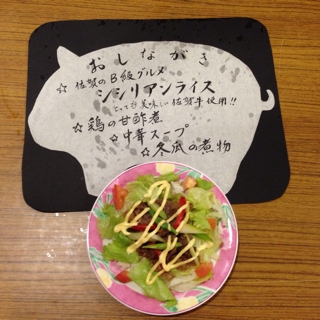 おしながき
☆佐賀のB級グルメ
シシリアンライス
とっても美味しい佐賀牛使用!!
☆鶏の甘酢煮
☆中華スープ
☆冬瓜の煮物